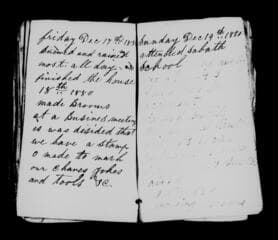 friday Dec 17th 1880
and rained
most all day
finished the house
18th 1880
made Brooms
at a Business meeting
it was desided that
we have a Stamp
made to mark
our Chanes yokes
and tools &C.
Sunday Dec 19th 1880
attended Sabath
School